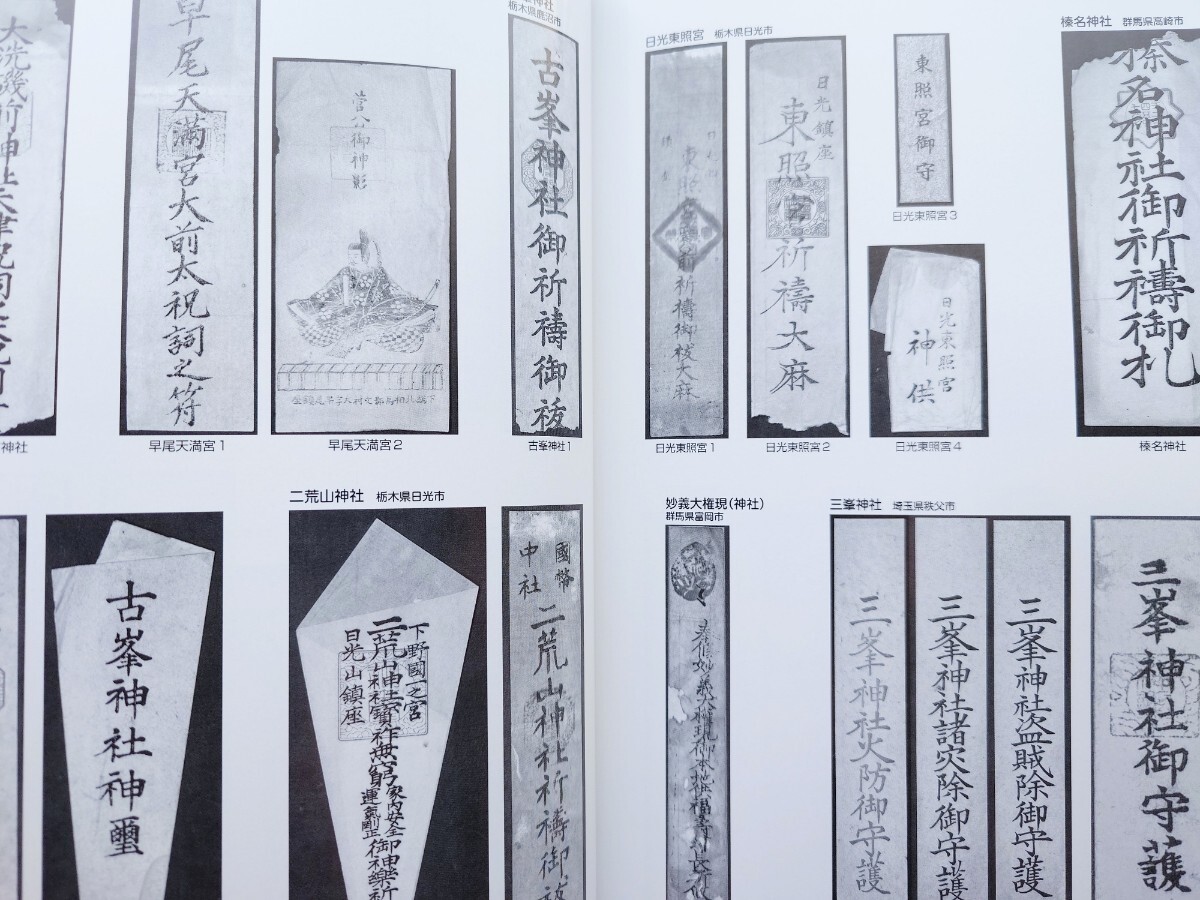 大洗磯前神社
神社
早尾天満宮大前太祝詞之符
早尾天満宮1
菅公御神影
早尾天満宮2
栃木県鹿沼市
古峯神社御祈禱御祓
古峯神社1
日光東照宮 栃木県日光市
祈禱御祓大麻
日光東照宮1
日光鎮座
東照宮祈禱大麻
日光東照宮2
東照宮御守
日光東照宮3
日光東照宮
神供
日光東照宮4
榛名神社 群馬県高崎市
榛名神社御祈禱御札
榛名神社
古峯神社神璽
二荒山神社 栃木県日光市
下野國一之宮
二荒山神社寶祚無窮
日光山鎮座
家内安全
御神樂祈
國幣
中社
二荒山神社祈禱御祓
妙義大権現(神社)
群馬県富岡市
三峯神社 埼玉県秩父市
三峯神社火防御守護
三峯神社諸災除御守護
三峯神社盗賊除御守護
三峯神社御守護